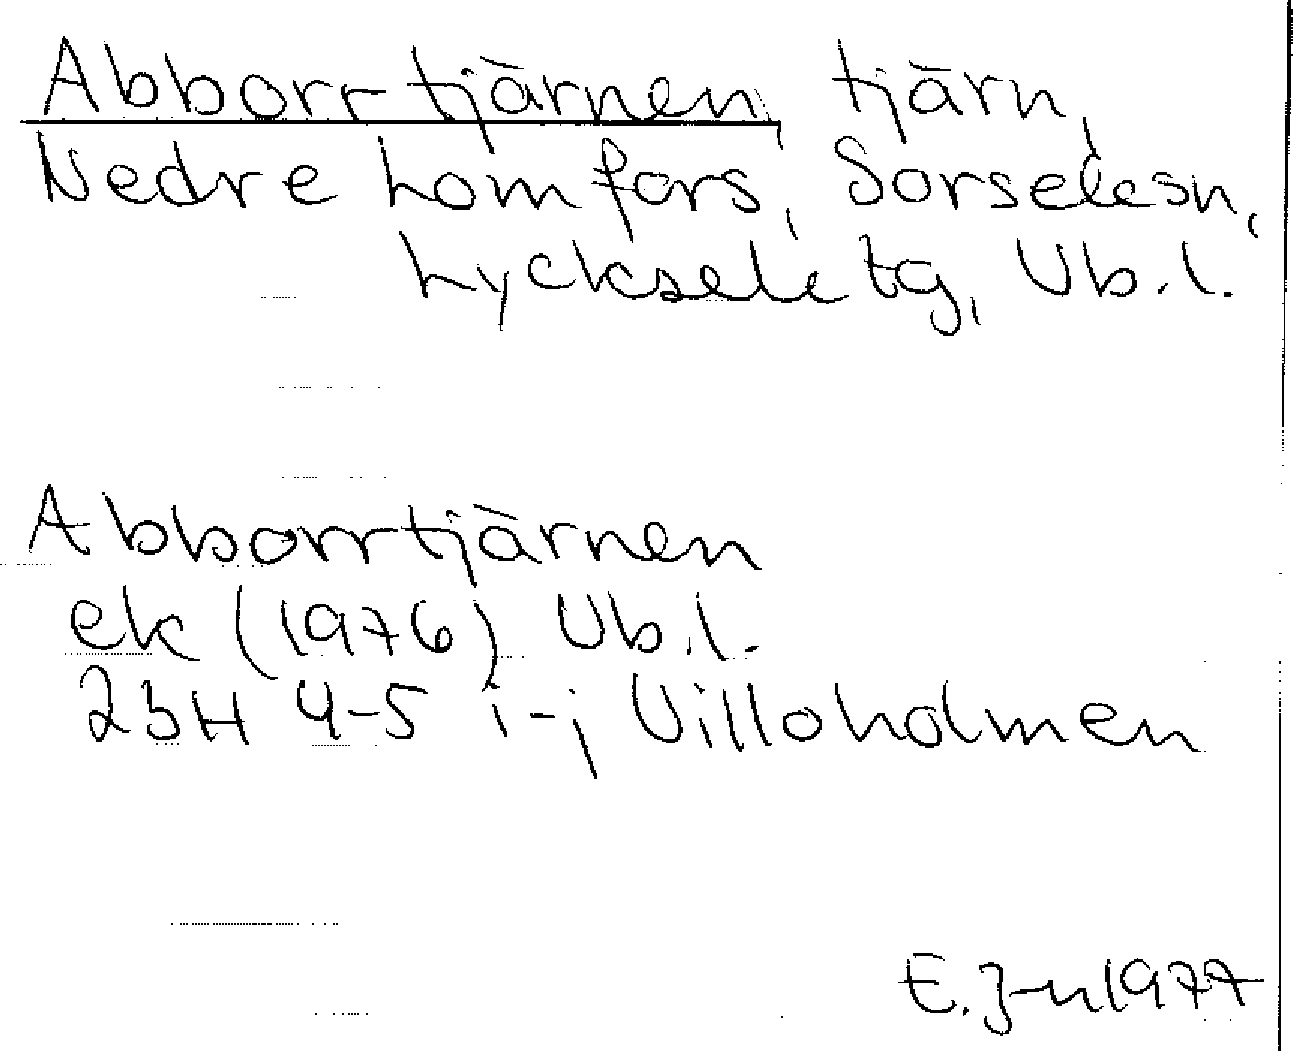 Abborrtjärnen, tjärn,
Nedre Lomfors, Sorselesn,
Lycksele tg, Vb.l.
Abborrtjärnen
ek (1976) Vb.l.
23H 4-5 i-j Villoholmen
E. J-n 1977